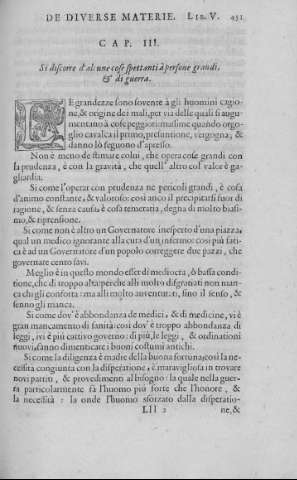 DE DIVERSE MATERIE. LIB. V. 451
CAP. III.
Si discorre d'alcune cose spettanti à persone grandi,
& di guerra.
LE grandezze sono souente à gli huomini cagio-
ne, & origine dei mali, per via delle quali si augu
mentano à cose peggiori: massime quando orgo-
glio caualca il primo, presuntione, vergogna, &
danno lo seguono d'apresso.
Non è meno de stimare colui, che opera cose grandi con
la prudenza, e con la grauità, che quell'altro col valor è ga-
gliardia.
Si come l'operar con prudenza ne pericoli grandi, è cosa
d'animo constante, & valoroso: cosi anco il precipitarsi fuor di
ragione, & senza causa, è cosa temeraria, degna di molto biasi-
mo, & riprensione.
Si come non è altro un Gouernatore inesperto d'una piazza,
qual un medico ignorante alla cura d'un infermo: cosi più fati-
ca è ad un Gouernatore d'un popolo correggere due pazzi, che
gouernare cento saui.
Meglio è in questo mondo esser di mediocre, ò bassa condi-
tione, che di troppo alta: perche alli molti disgratiati non man-
ca chi gli conforta: ma alli molto auuenturati, sino il senso, &
senno gli manca.
Si come dou'è abbondanza de medici, & di medicine, vi è
gran mancamento di sanità: cosi dou'è troppo abbondanza di
leggi, iui è più cattiuo gouerno: di più, le leggi, & ordinationi
nuoui, fanno dimenticare i buoni costumi antichi.
Si come la diligenza è madre della buona fortuna; cosi la ne-
cessità congiunta con la disperatione, è marauigliosa in trouar
noui partiti, & prouedimenti al bisogno: la quale nella guer-
ra particolarmente fa l'huomo più forte che l'honore, &
la necessità: la onde l'huomo sforzato dalla disperatio-
Lll 2 ne, &